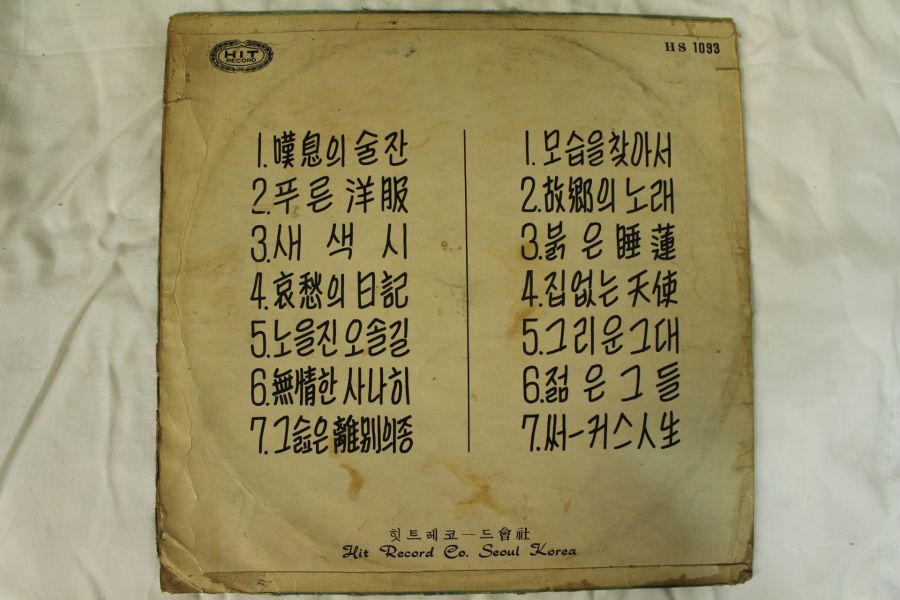 HIT
RECORD
HS 1093
1. 嘆息의 술잔
2. 푸른 洋服
3. 새색시
4. 哀愁의 日記
5. 노을진 오솔길
6. 無情한 사나히
7. 그슲은 離別의종
1. 모습을 찾아서
2. 故鄕의 노래
3. 붉은 睡蓮
4. 집없는 天使
5. 그리운 그대
6. 젊은 그들
7. 써-커스人生
힛트레코-드會社
Hit Record Co. Seoul Korea